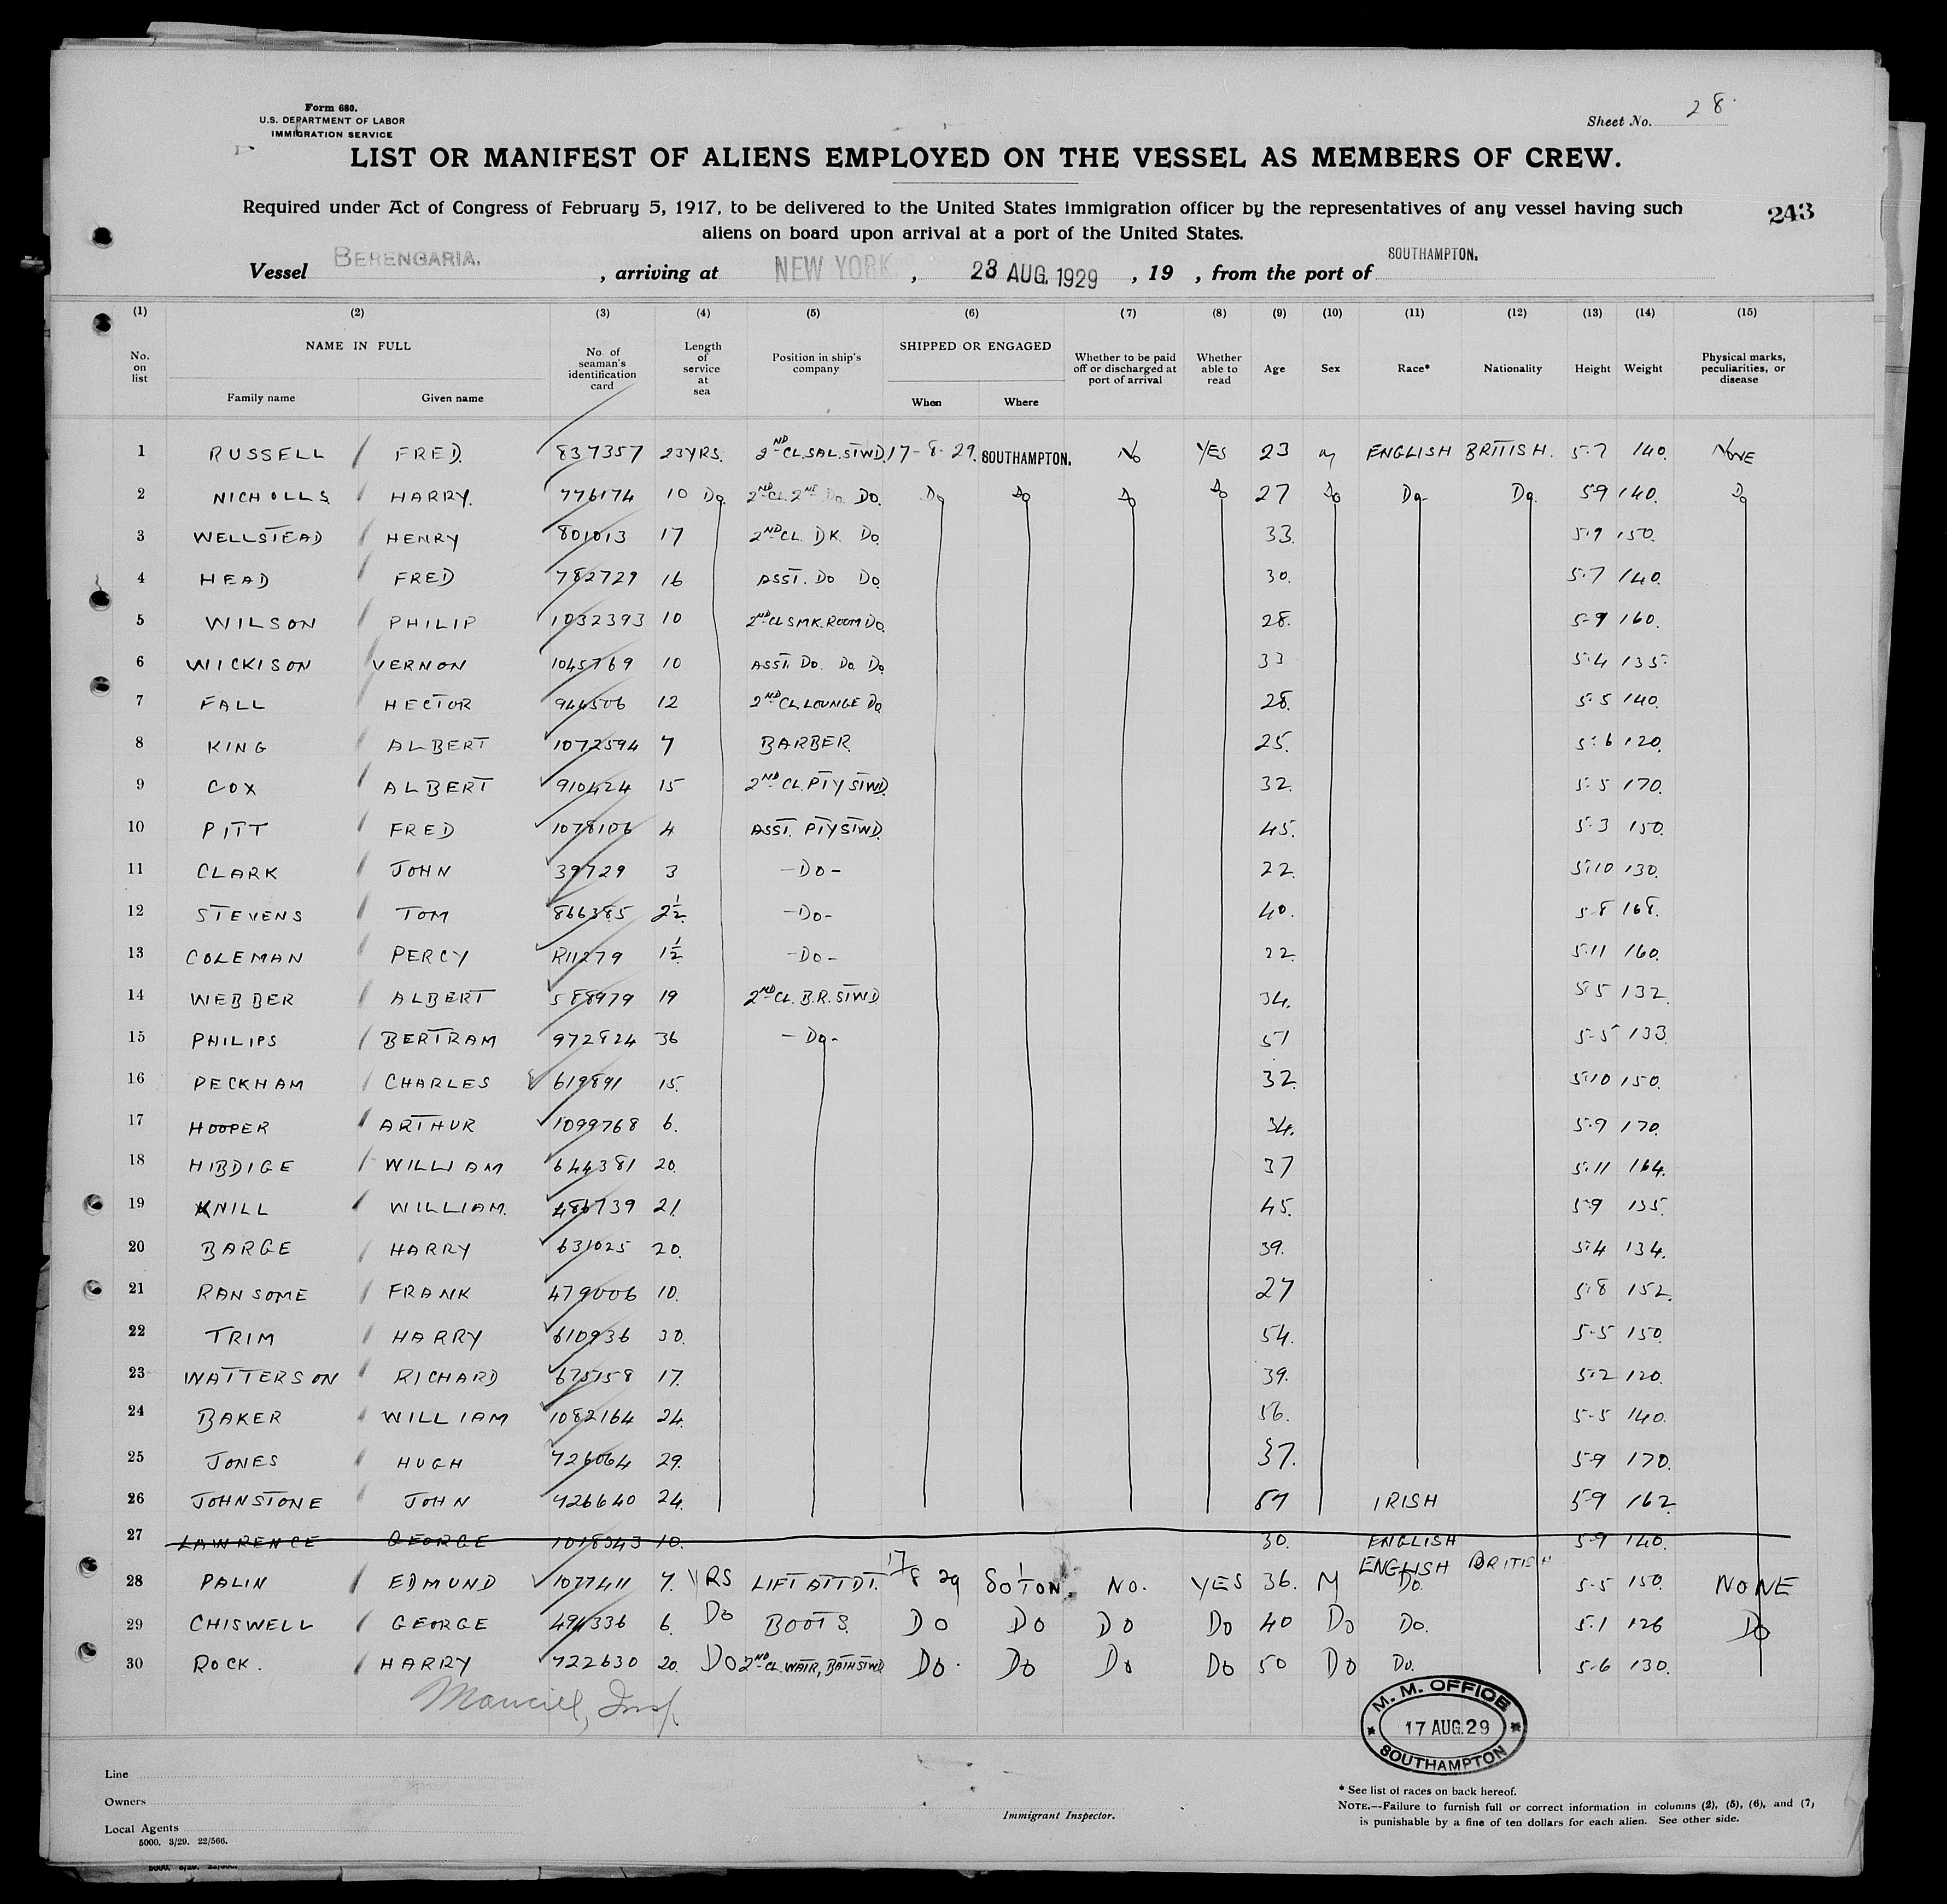 Form 680.
U.S. DEPARTMENT OF LABOR
IMMIGRATION SERVICE
Sheet No. 28
LIST OR MANIFEST OF ALIENS EMPLOYED ON THE VESSEL AS MEMBERS OF CREW.
Required under Act of Congress of February 5, 1917, to be delivered to the United States immigration officer by the representatives of any vessel having such
aliens on board upon arrival at a port of the United States.
243
Vessel BERENGARIA. , arriving at NEW YORK , 23 AUG. 1929 , 19 , from the port of SOUTHAMPTON.
(1) (2) (3) (4) (5) (6) (7) (8) (9) (10) (11) (12) (13) (14) (15)
No. on list NAME IN FULL Family name Given name No. of seaman's identification card Length of service at sea Position in ship's company SHIPPED OR ENGAGED When Where Whether to be paid off or discharged at port of arrival Whether able to read Age Sex Race* Nationality Height Weight Physical marks, peculiarities, or disease
1 RUSSELL FRED. 837357 23YRS. 2ND CL.SAL.STWD. 17-8-29. SOUTHAMPTON. No YES 23 M ENGLISH BRITISH. 5-7 140. NONE
2 NICHOLLS HARRY. 776174 10 Do. 2ND CL. 2ND Do. Do. Do Do Do Do 27 Do Do- Do. 5-9 140. Do
3 WELLSTEAD HENRY 801013 17 2ND CL. DK. Do. 33. 5-9 150.
4 HEAD FRED 782729 16 ASST. Do Do. 30. 5-7 140.
5 WILSON PHILIP 1032393 10 2ND CL SMK. ROOM Do. 28. 5-9 160.
6 WICKISON VERNON 1045769 10 ASST. Do. Do. Do 33 5-4 135.
7 FALL HECTOR 944506 12 2ND CL. LOUNGE Do. 28. 5-5 140.
8 KING ALBERT 1072594 7 BARBER 25. 5-6 120.
9 COX ALBERT 910424 15 2ND CL. PTY STWD. 32. 5-5 170.
10 PITT FRED 1078106 4 ASST. PTY STWD. 45. 5-3 150.
11 CLARK JOHN 39729 3 -Do- 22. 5-10 130.
12 STEVENS TOM 866385 2½ -Do- 40. 5-8 168.
13 COLEMAN PERCY R11279 1½ -Do- 22. 5-11 160.
14 WEBBER ALBERT 588979 19 2ND CL. B.R. STWD 34. 5-5 132.
15 PHILIPS BERTRAM 972824 36 -Do- 51 5-5 133.
16 PECKHAM CHARLES 619891 15. 32. 5-10 150.
17 HOOPER ARTHUR 1099768 6. 34. 5-9 170.
18 HIBDIGE WILLIAM 644381 20. 37 5-11 164.
19 KNILL WILLIAM. 486739 21. 45. 5-9 135.
20 BARGE HARRY 631025 20. 39. 5-4 134.
21 RANSOME FRANK 479006 10. 27 5-8 152.
22 TRIM HARRY 610936 30. 54. 5-5 150.
23 WATTERSON RICHARD 675158 17. 39. 5-2 120.
24 BAKER WILLIAM 1082164 24. 56. 5-5 140.
25 JONES HUGH 726064 29. 37. 5-9 170.
26 JOHNSTONE JOHN 726640 24. 57 IRISH 5-9 162
27 LAWRENCE GEORGE 1018343 10. 30. ENGLISH 5-9 140.
28 PALIN EDMUND 1077411 7. YRS LIFT ATTDT. 17/8 29 SO'TON. NO. YES 36. M ENGLISH Do. BRITISH 5-5 150. NONE
29 CHISWELL GEORGE 491336 6. Do BOOTS. Do Do Do Do 40 Do Do. 5-1 126 Do
30 ROCK. HARRY 722630 20. Do 2ND CL. WAIR, BATH STWD Do. Do Do Do 50 Do Do. 5-6 130.
M. M. OFFICE
17 AUG. 29
SOUTHAMPTON
Line
Owners
Local Agents
5000. 3/29. 22/566.
Immigrant Inspector.
* See list of races on back hereof.
NOTE.—Failure to furnish full or correct information in columns (2), (5), (6), and (7),
is punishable by a fine of ten dollars for each alien. See other side.